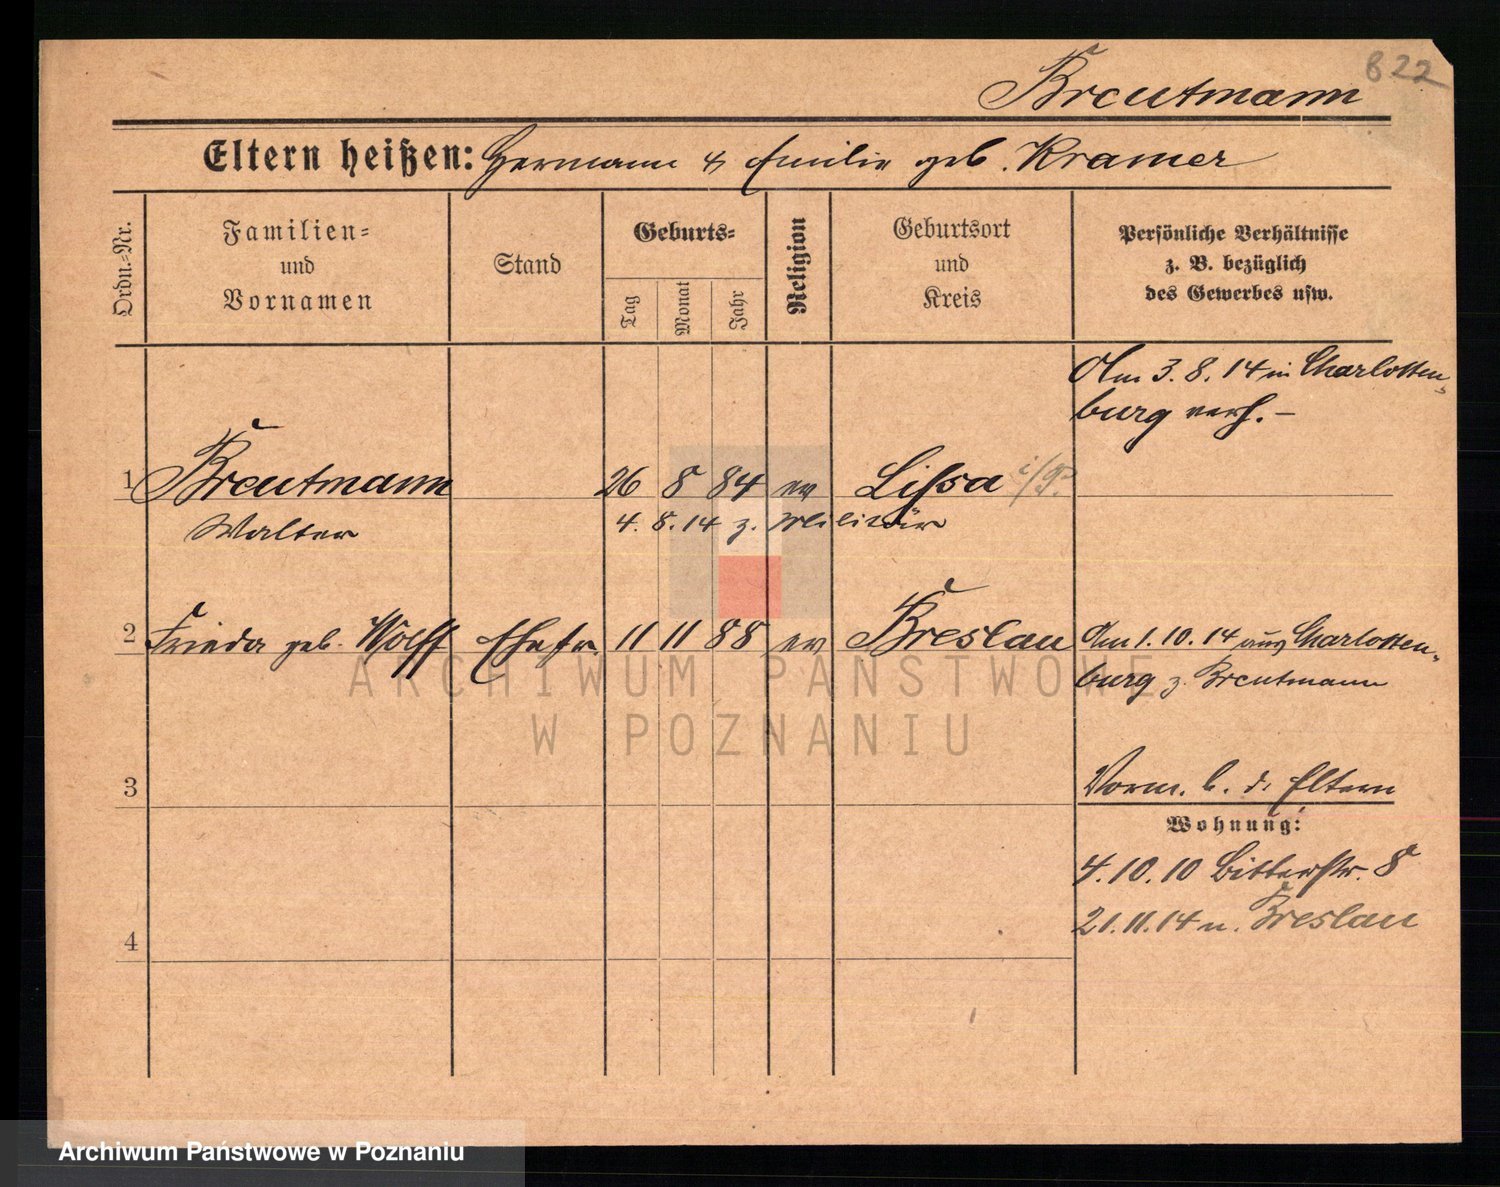 822
Breutmann
Eltern heißen: Hermann & Emilie geb. Kramer
Ordn.-Nr.
Familien-
und
Vornamen
Stand
Geburts-
Tag
Monat
Jahr
Religion
Geburtsort
und
Kreis
Persönliche Verhältnisse
z. B. bezüglich
des Gewerbes usw.
Am 3. 8. 14 in Charlotten-
burg verh. –
1 Breutmann 26 8 84 ev Lissa i/P.
Walter 4. 8. 14 z. Militär
2 Frieda geb. Wolff Ehefr. 11 11 88 ev Breslau Am 1. 10. 14 aus Charlotten-
burg z. Breutmann
3 Vorm. b. d. Eltern
Wohnung:
4. 10. 10 Bitterstr. 8
4 21. 11. 14 n. Breslau
ARCHIWUM PAŃSTWOWE
W POZNANIU
Archiwum Państwowe w Poznaniu